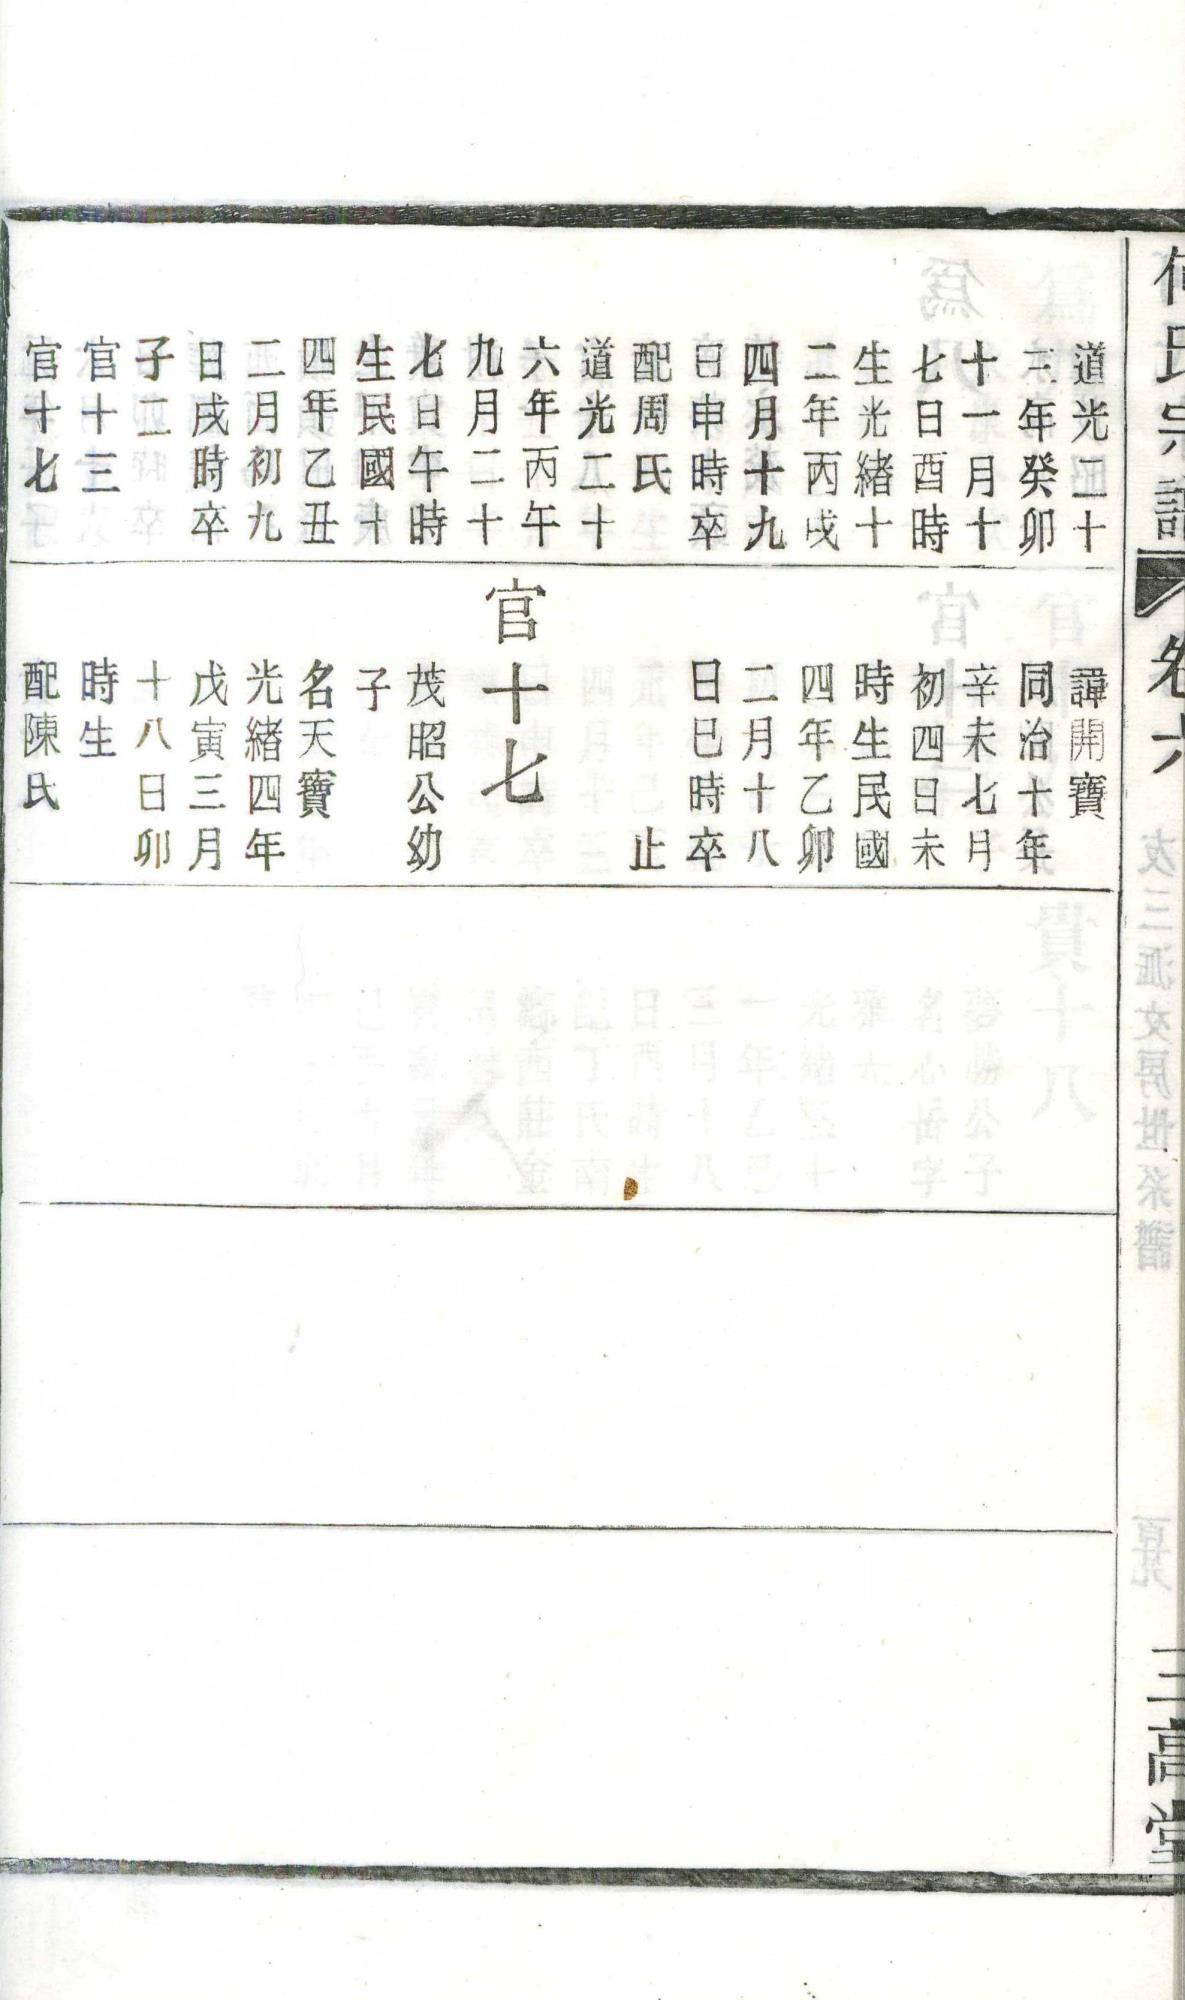 何氏宗譜
卷六
三高堂
道光二十
三年癸卯
十一月十
七日酉時
生光緒十
二年丙戌
四月十九
日申時卒
配周氏
道光二十
六年丙午
九月二十
七日午時
生民國十
四年乙丑
二月初九
日戌時卒
子二
官十三
官十七
諱開寶
同治十年
辛未七月
初四日未
時生民國
四年乙卯
二月十八
日巳時卒
止
官十七
茂昭公幼
子
名天寶
光緒四年
戊寅三月
十八日卯
時生
配陳氏